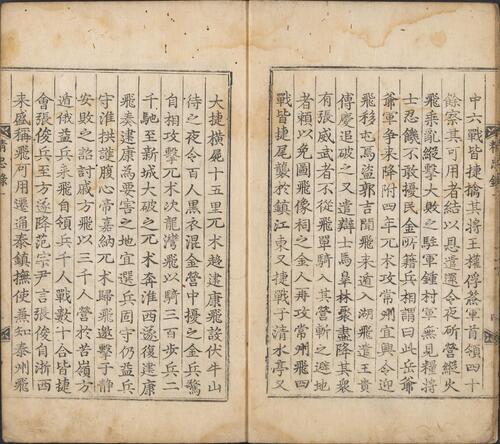 中六戰皆捷擒其將王權俘僉軍首領四十
餘察其可用者結以恩遣還令夜斫營縱火
飛乘亂縱擊大敗之駐軍鍾村軍無見糧將
士忍饑不敢擾民金所籍兵相謂曰此岳爺
爺軍爭来降附四年兀术攻常州宜興令迎
飛移屯焉盜郭吉聞飛来遁入湖飛遣王貴
傅慶追破之又遣辯士馬皐林聚盡降其衆
有張威武者不從飛單騎入其營斬之避地
者賴以免圖飛像祠之金人再攻常州飛四
戰皆捷尾襲於鎮江東又捷戰于清水亭又
大捷橫屍十五里兀术趨建康飛設伏牛山
待之夜令百人黑衣混金營中擾之金兵驚
自相攻擊兀术次龍灣飛以騎三百步兵二
千馳至新城大破之兀术奔淮西遂復建康
飛奏建康為要害之地宜選兵固守仍益兵
守淮拱護腹心帝嘉納兀术歸飛邀擊于靜
安敗之詔討戚方飛以三千人營於苦嶺方
遁俄益兵来飛自領兵千人戰數十合皆捷
會張俊兵至方遂降范宗尹言張俊自浙西
来盛稱飛可用遷通泰鎮撫使兼知泰州飛
精忠錄